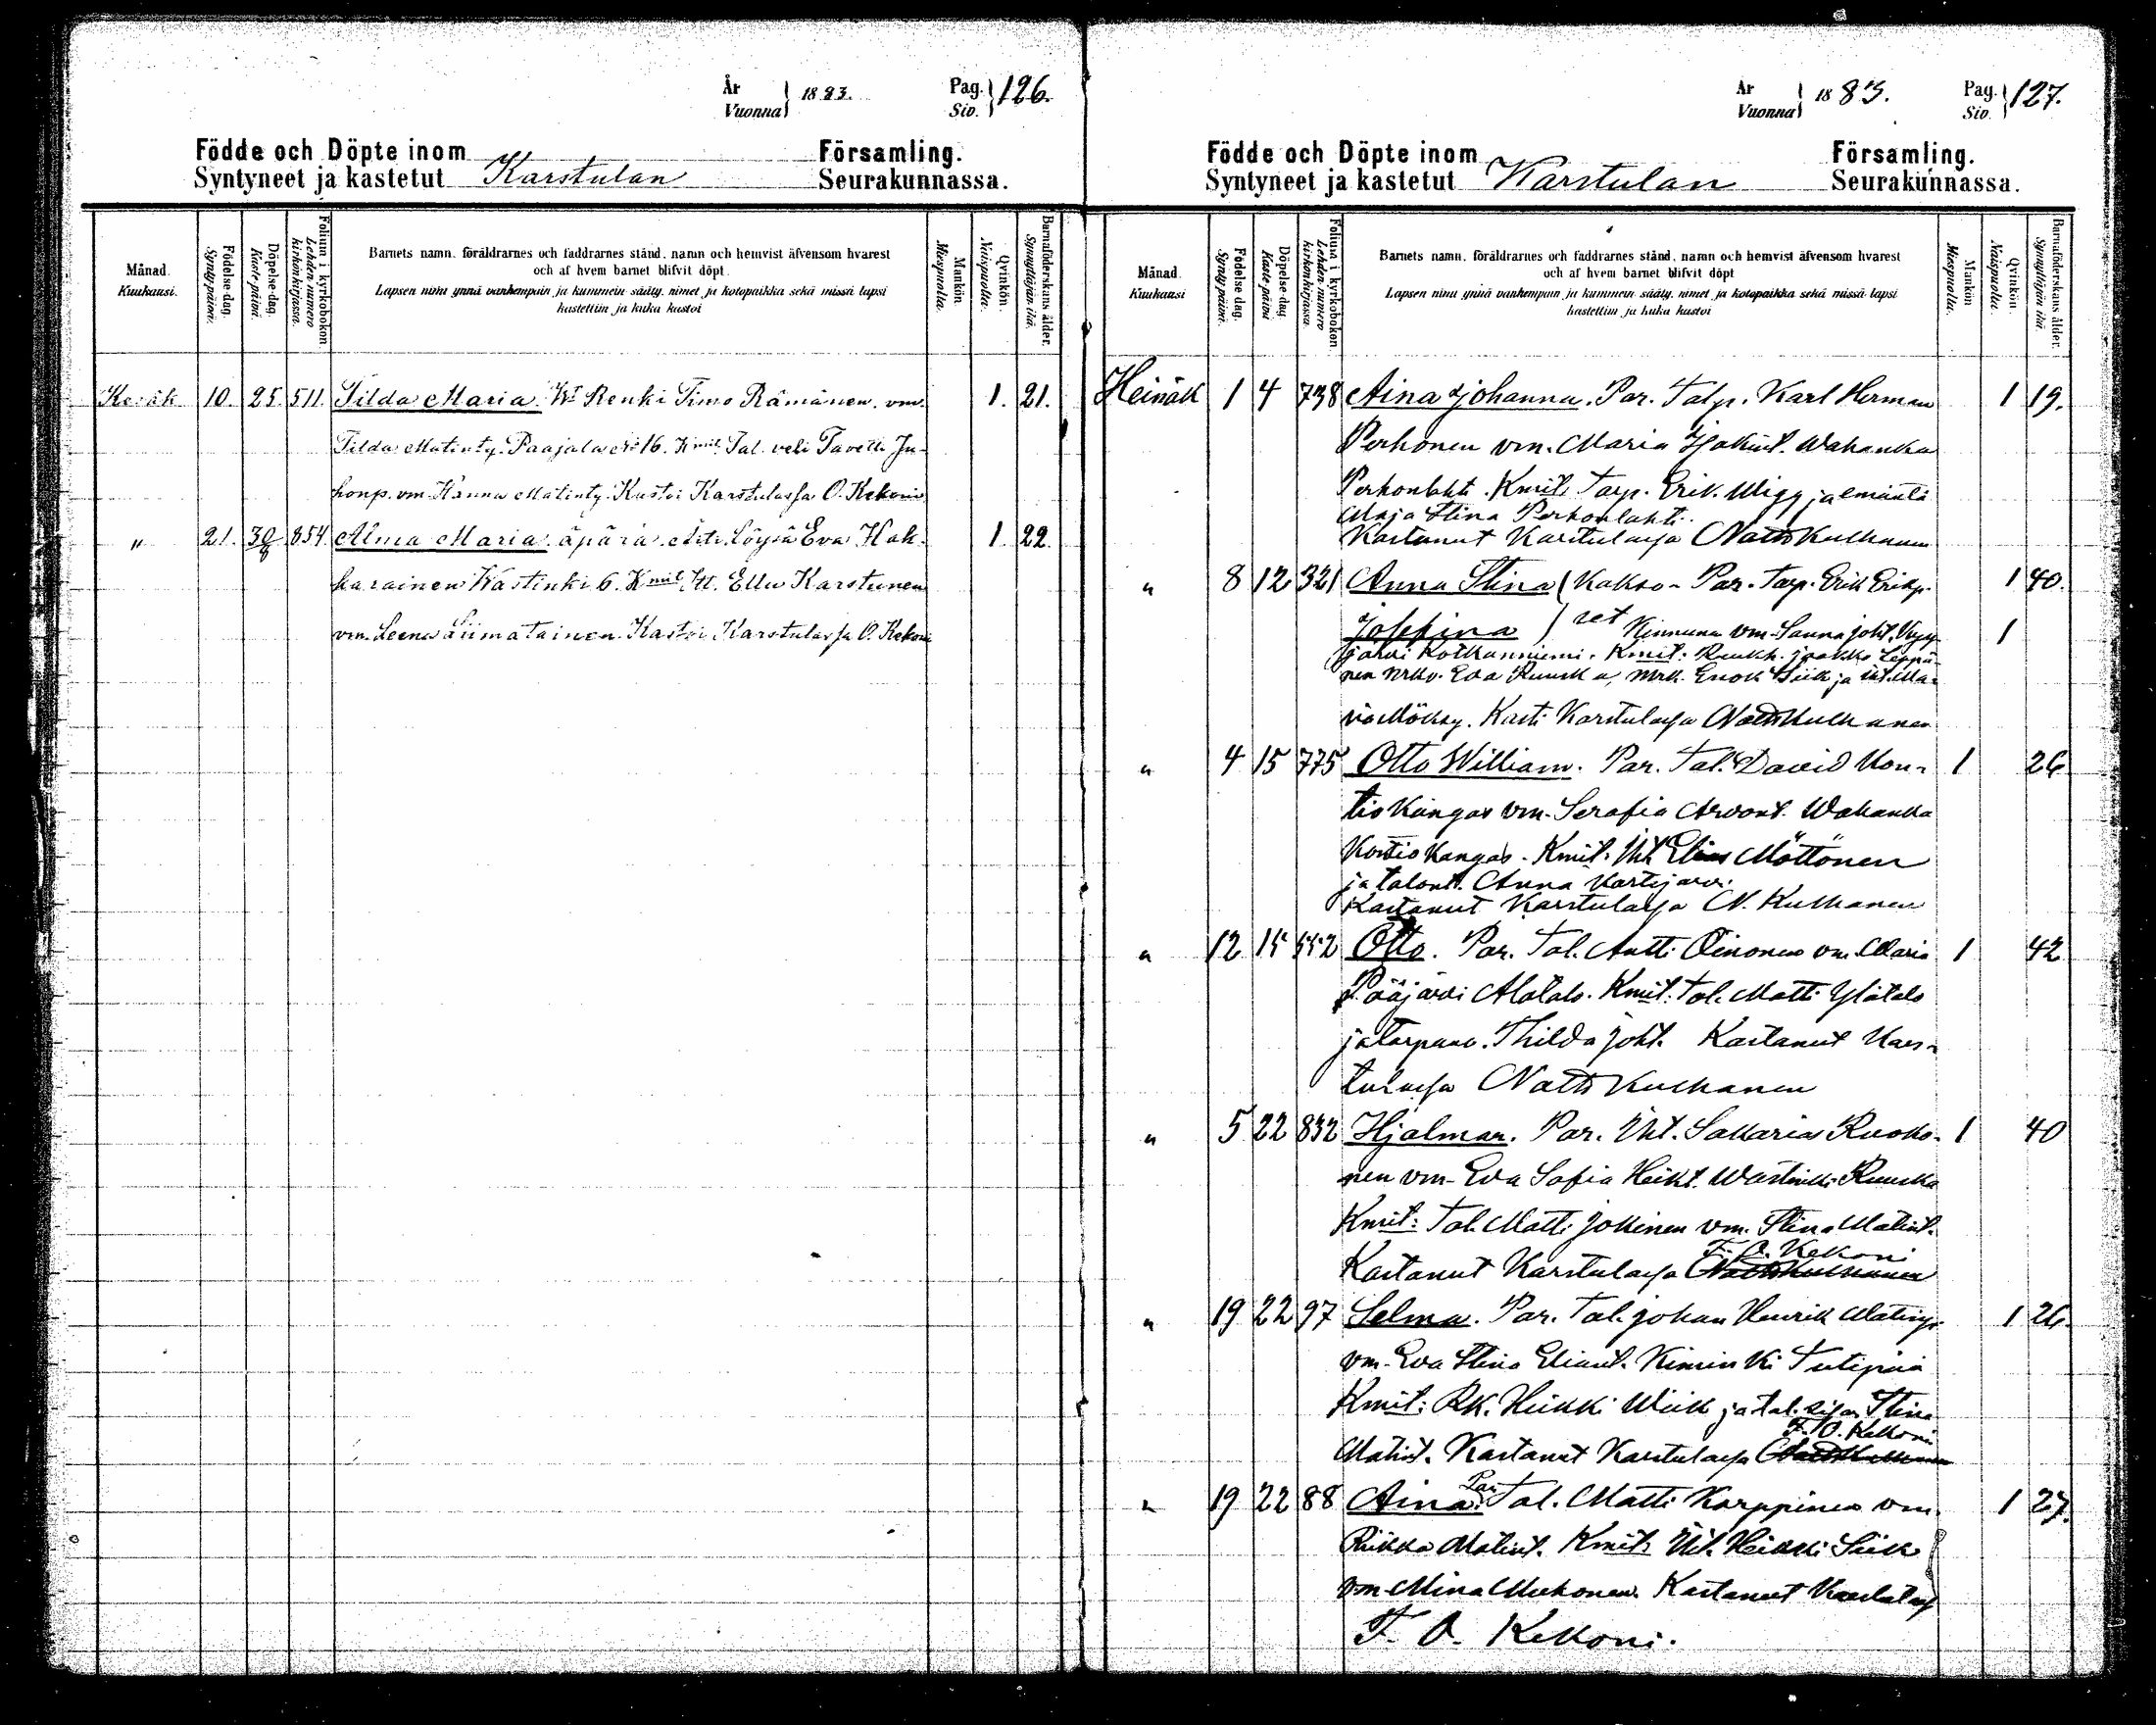 År
Vuonna } 1883. Pag.
Siv. } 126.
Födde och Döpte inom Församling.
Syntyneet ja kastetut Karstulan Seurakunnassa.
Månad.
Kuukausi.
Födelse-dag.
Synty-päivä.
Döpelse-dag.
Kaste-päivä.
Folium i kyrkoboken
Lehden numero
kirkonkirjassa.
Barnets namn, föräldrarnes och faddrarnes stånd, namn och hemvist äfvensom hvarest
och af hvem barnet blifvit döpt.
Lapsen nimi ynnä vanhempain ja kummein sääty, nimet ja kotopaikka sekä missä lapsi
kastettiin ja kuka kastoi
Mankön
Miespuolta.
Qvinkön.
Naispuolta.
Barnaföderskans ålder.
Synnyttäjän ikä.
Kesäk 10. 25 511. Tilda Maria. Renki Timo Rämänen. vm. 1. 21.
Tilda Matinty. Paajala № 16. Kmit. Tal. veli Tavetti Ju-
honp. vm Hanna Matinty. Kastoi Karstulassa O. Kekoni
" 21. 30 854. Alma Maria. äpärä. Äiti. Löysä Eva Hok-
karainen Wastinki 6. Kmit Itt. Elli Karstunen 1. 22.
vm. Leena Liimatainen. Kastoi Karstulassa O. Kekoni
År
Vuonna } 1883. Pag.
Siv. } 127.
Födde och Döpte inom Församling.
Syntyneet ja kastetut Karstulan Seurakunnassa.
Månad.
Kuukausi
Födelse dag.
Synty päivä.
Döpelse-dag
Kaste päivä
Folium i kyrkoboken
Lehden numero
kirkonkirjassa.
Barnets namn, föräldrarnes och faddrarnes stånd, namn och hemvist äfvensom hvarest
och af hvem barnet blifvit döpt
Lapsen nimi ynnä vanhempain ja kummein sääty, nimet ja kotopaikka sekä missä lapsi
kastettiin ja kuka kastoi
Mankön
Miespuolta.
Qvinkön.
Naispuolta.
Barnaföderskans ålder.
Synnyttäjän ikä.
Heinäk 1 4 738 Aina Johanna. Par. Talp. Karl Herman 1 19.
Perhonen vm. Maria Jjakint. Wahanka
Perhonlahti. Kmit. Tarp. Erik Wigg ja emäntä
Maja Stina Perhonlahti.
Kastanut Karstulassa Natti Kulhanen
" 8 12 321 Anna Stina ( Kakso- Par. Tarp. Erik Erikp. 1 40.
Josefina ) set Kinnunen vm. Sanna Joht. Kyy- 1
järvi Kotkanniemi. Kmit: Ruukh. Jaakko Leppä-
nen Mrkv. Eva Ruuska, Mrk. Enok Siik ja itt. Ma-
ria Möksy. Kasti Karstulassa Natti Kulhanen
" 4 15 775 Otto William. Par. Tal. David Kon- 1 26
tiokangas vm. Serafia Arvont. Wahanka
Kontiokangas. Kmit. Itt. Elias Möttönen
ja talont. Anna
Kastanut Karstulassa N. Kulhanen
" 12 15 552 Otto. Par. Tal. Antti Oinonen vm. Maria 1 42
Pääjärvi Alatalo. Kmit: Tal. Matti Ylätalo
ja Tarpuno. Thilda Joht. Kastanut Kars-
tulassa Natti Kulhanen
" 5 22 832 Hjalmar. Par. Itt. Sakarias Ruoko- 1 40
nen vm. Eva Sofia Heikt. Wastinki Ruuska
Kmit: Tal. Matti Jokinen vm. Stina Matint.
F. O. Kekoni
Kastanut Karstulassa Natti Kulhanen
" 19 22 97 Selma. Par. Tal. Johan Henrik Matinp. 1 26.
vm. Eva Stina Eliant. Kiminki
Kmit: Rk. Heikki Wiik ja tal. Stina
F. O. Kekoni
Matint. Kastanut Karstulassa Natti Kulhanen
" 19 22 88 Aina. Par. Tal. Matti Korppinen vm. 1 27.
Riikka Matint. Kmit: Itt. Heikki Siik
vm. Mina Kastanut Karstulas
F. O. Kekoni.